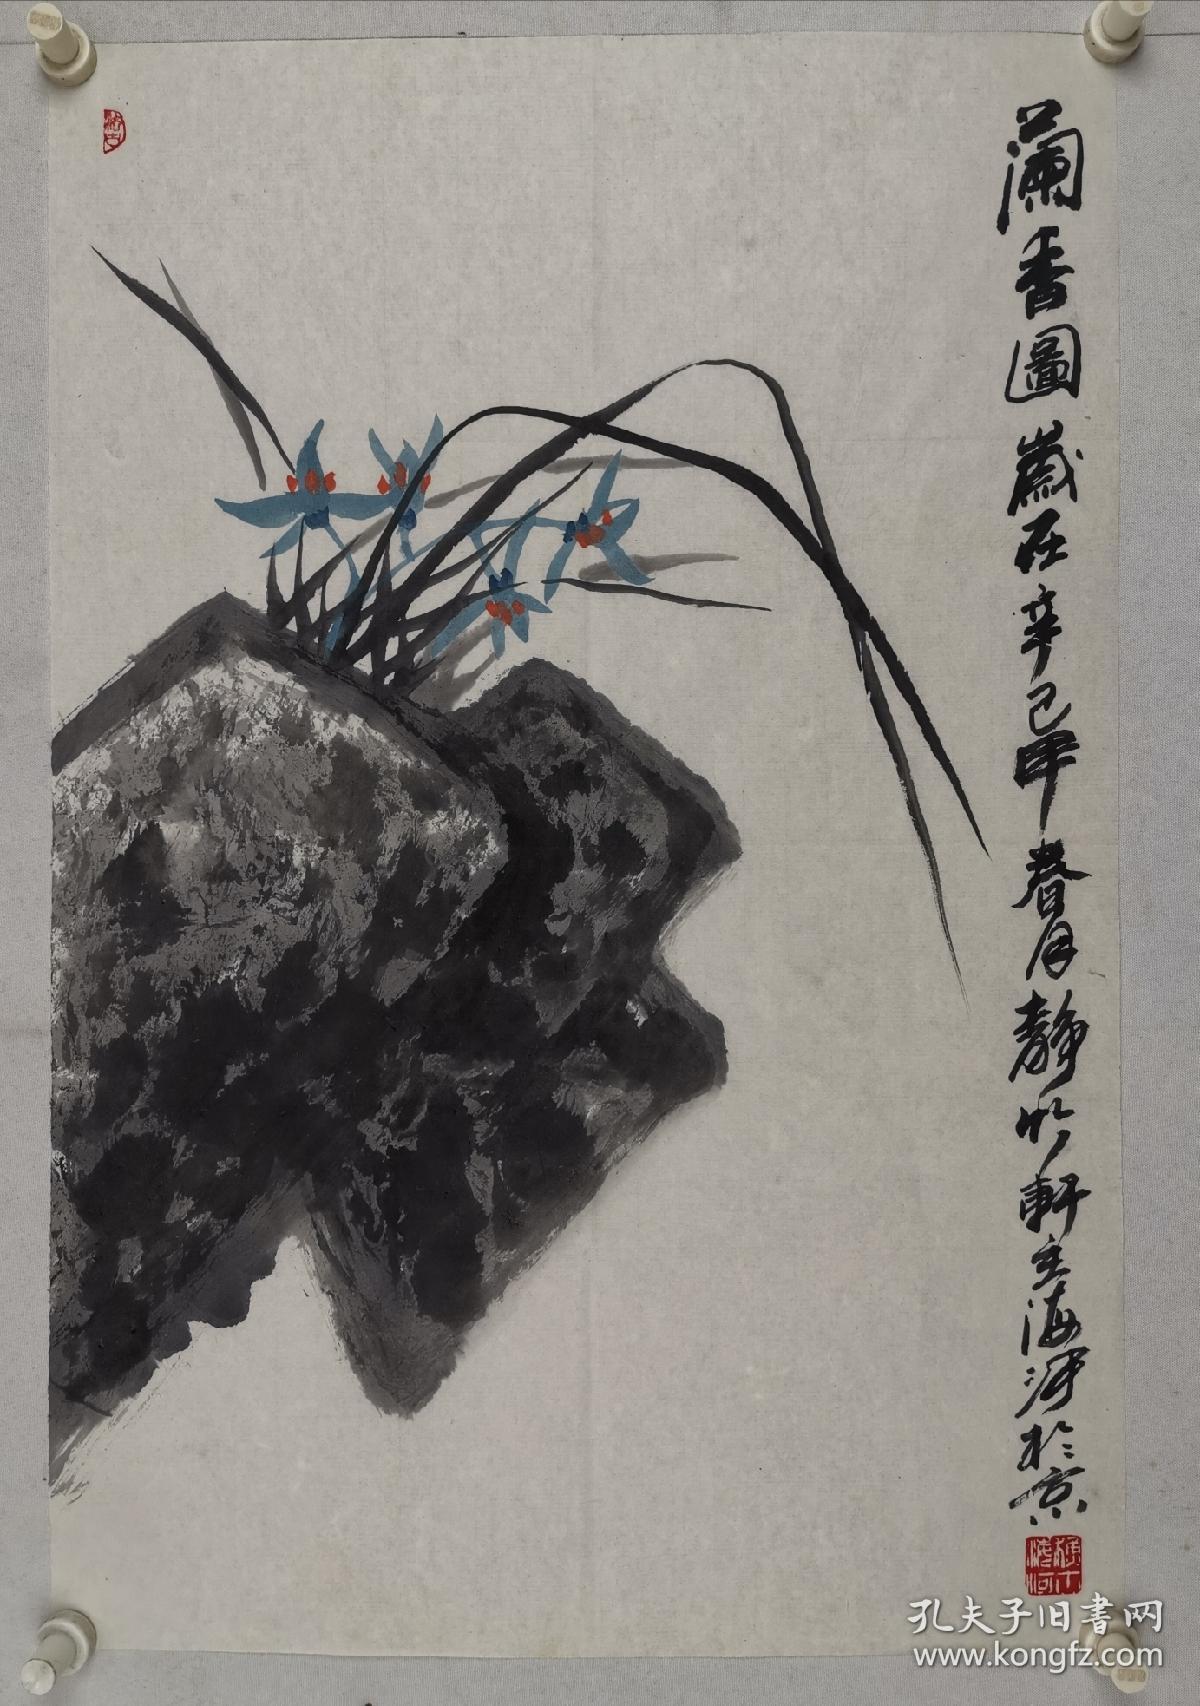 蘭香圖歲在辛巳年春月静竹軒主海河於京
孔夫子旧書网
www.kongfz.com